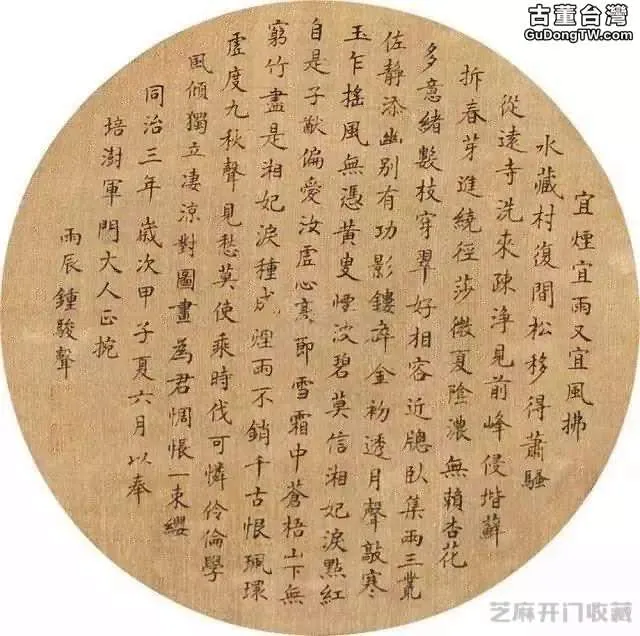 古董台灣
GuDongTW.com
宜煙宜雨又宜風拂
水藏村復間松移得蕭騷
從遠寺洗來疎淨見前峰侵堦蘚
拆春芽進繞徑莎微夏陰濃無賴杏花
多意緒數枝穿翠好相容近牕臥集雨三叢
佐靜添幽別有功影鏤碎金初透月聲敲寒
玉乍搖風無憑黃叟煙波碧莫信湘妃淚點紅
自是子猷偏愛汝虛心高節雪霜中蒼梧山下無
窮竹盡是湘妃淚種成煙雨不銷千古恨珮環
虛度九秋聲見愁莫使乘時伐可憐伶倫學
風傾獨立淒涼對圖畫為君惆悵一束纓
同治三年歲次甲子夏六月以奉
培澍軍門大人正捥
雨辰鍾駿聲
芝麻开门收藏